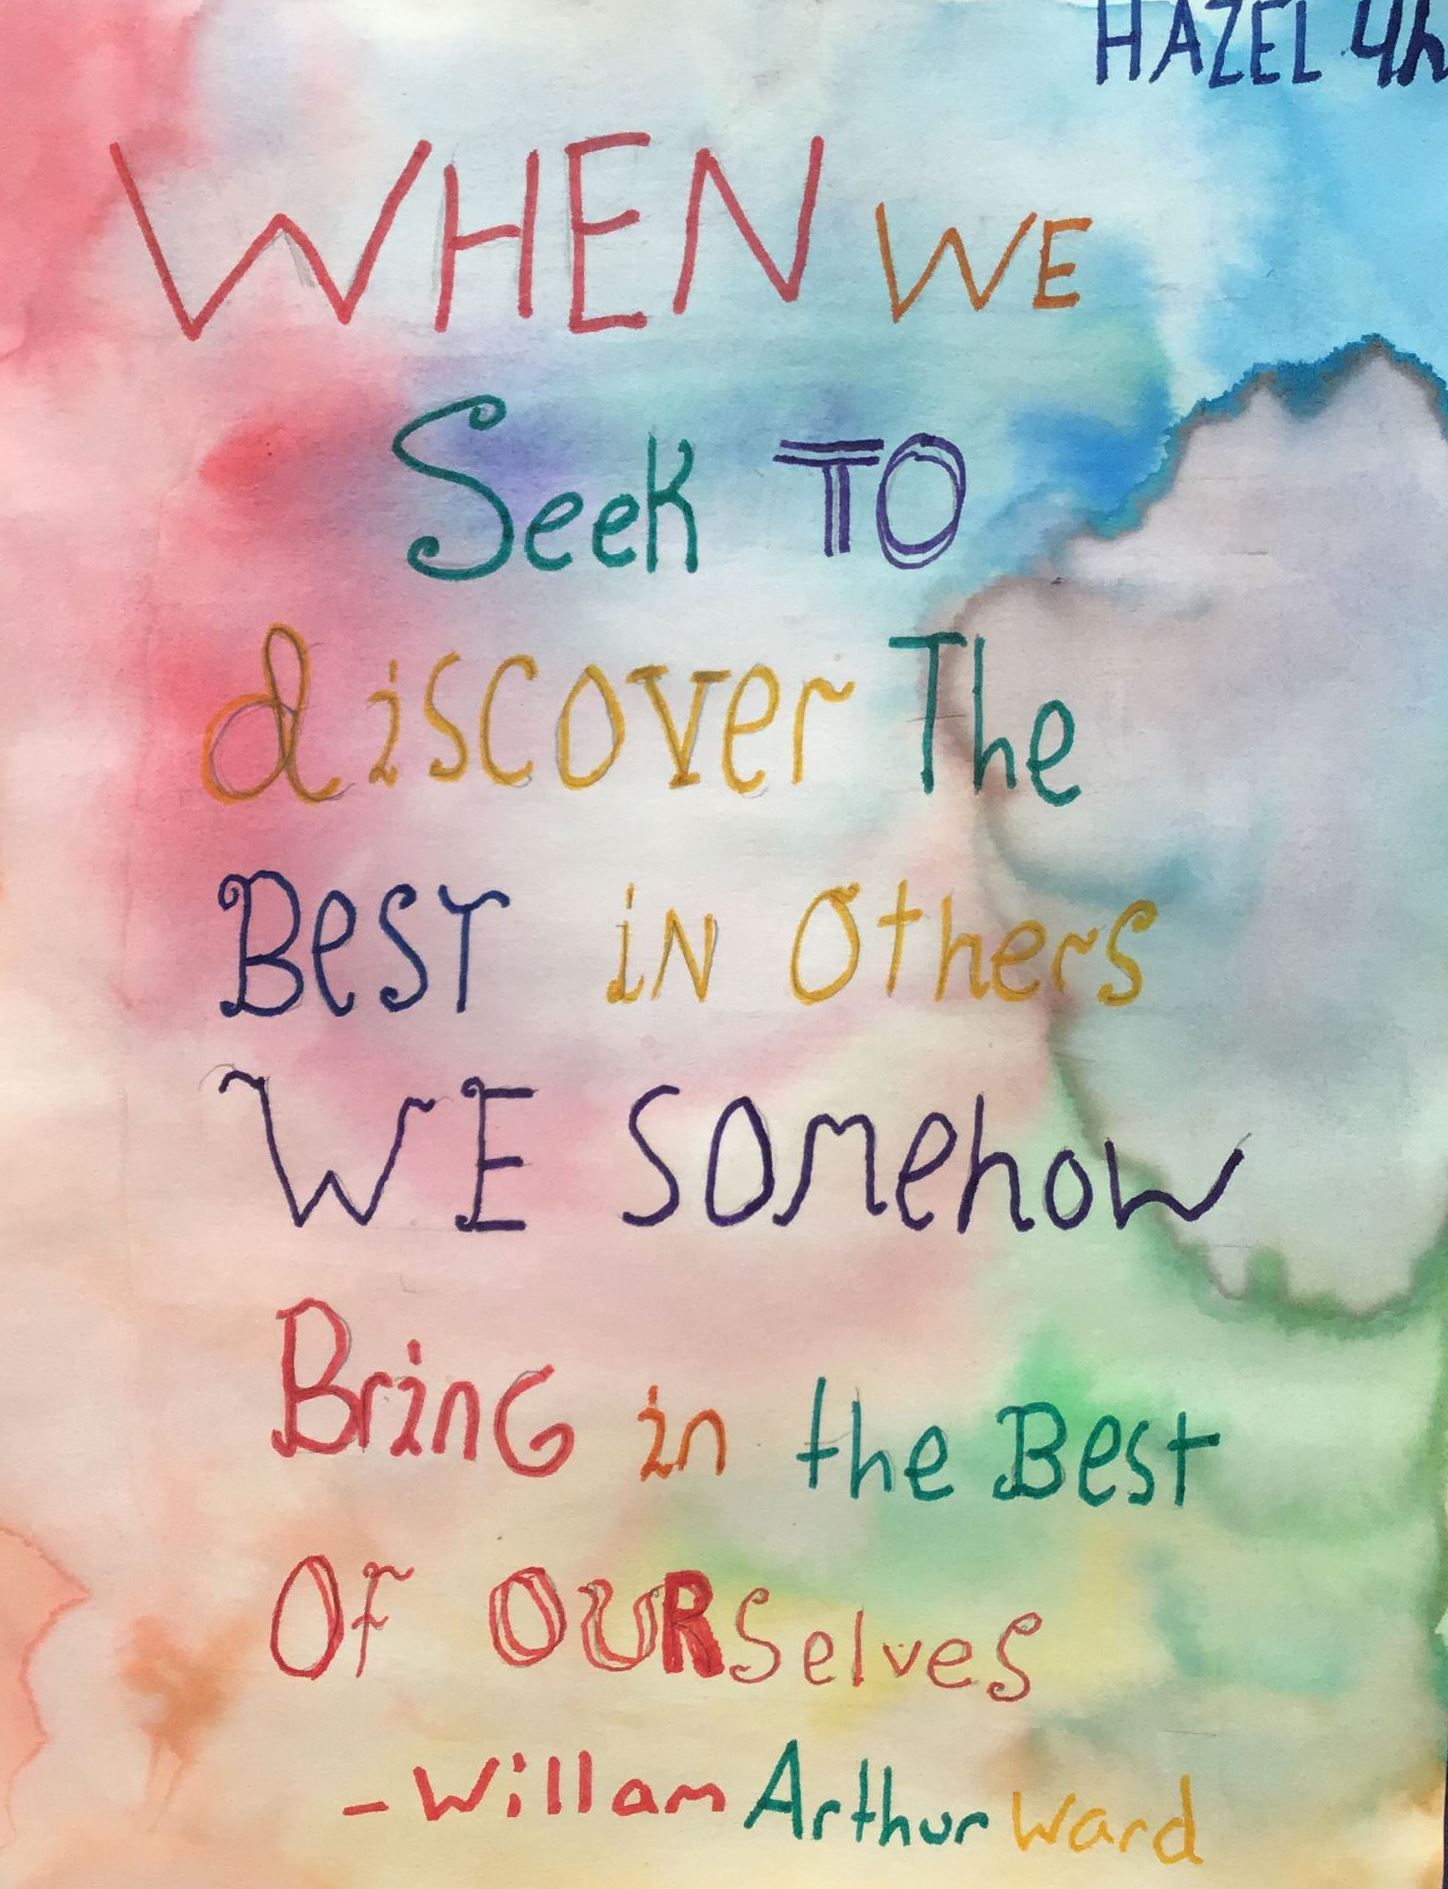 HAZEL 4h
WHEN WE
Seek TO
discover The
BesT iN Others
WE somehow
BrinG in the Best
OF OURSelves
- Willam Arthur Ward